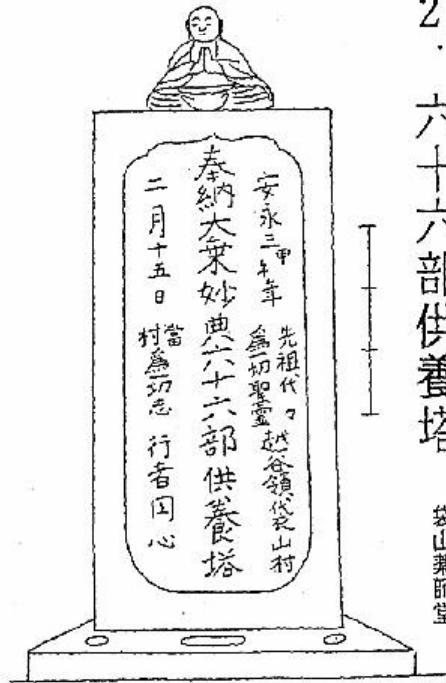 2. 六十六部供養塔
袋山薬師堂
安永三甲午年
先祖代々
為一切聖霊
越谷領袋山村
奉納大乗妙典六十六部供養塔
二月十五日
當村為一切志
行者円心